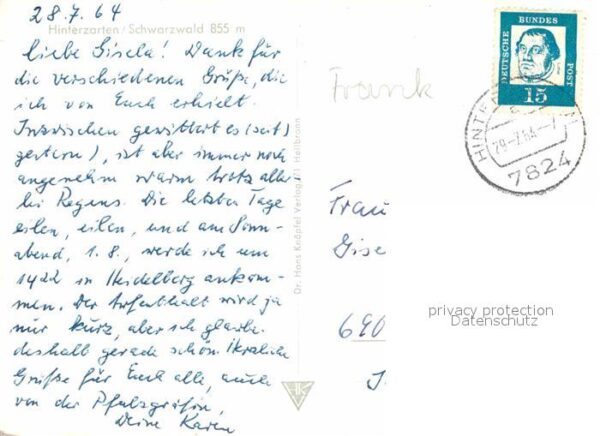 28.7.64
Hinterzarten/Schwarzwald 855 m
Liebe Gisela! Dank für
die verschiedenen Grüße, die
ich von Euch erhielt.
Inzwischen gewittert es (seit)
gestern), ist aber immer noch
angenehm warm trotz alle
bei Regens. Die letzten Tage
eilen, eilen, und am Sonn-
abend, 1.8., werde ich um
1422 in Heidelberg ankom-
men. Der Aufenthalt wird ja
nur kurz, aber ich glaube
deshalb gerade schön. Herzliche
Grüße für Euch alle, auch
von der Pfalzgräfin,
Deine Karen
Dr. Hans Knöpfel Verlag Heilbronn
Frank
DEUTSCHE BUNDES POST
15
29-7.64-7
7824
Frau
Gise
690
privacy protection
Datenschutz